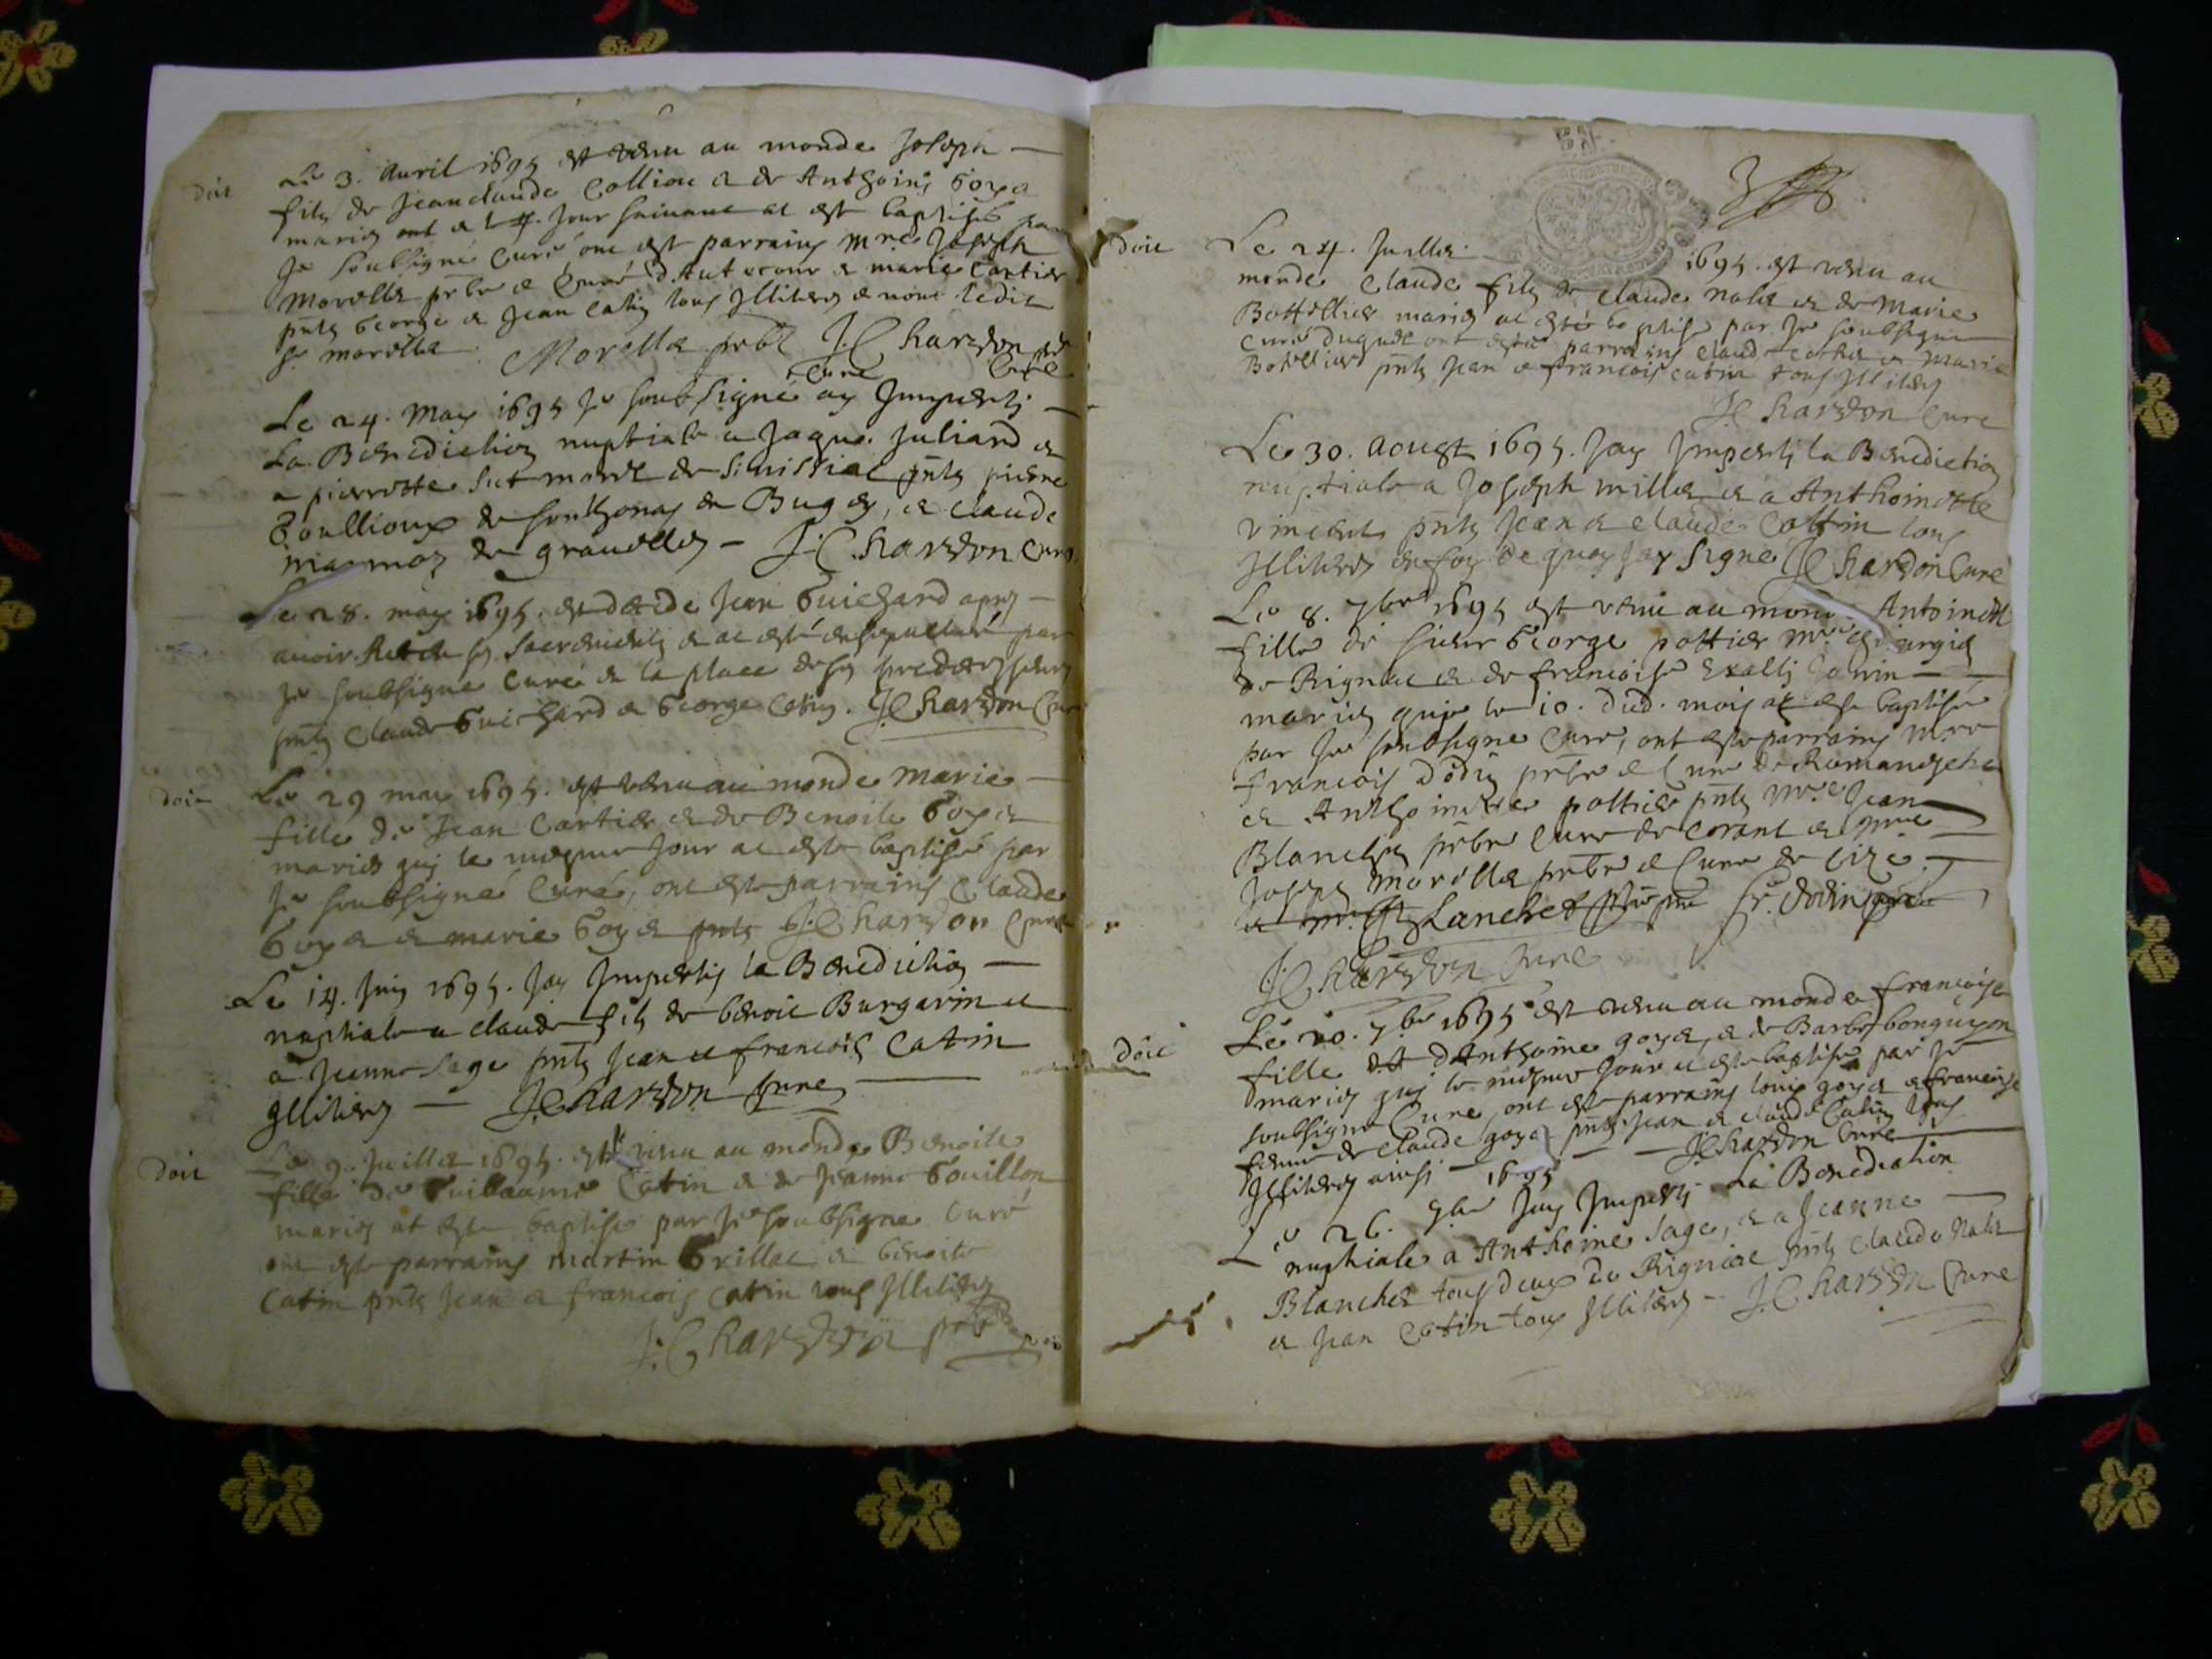 doit
Le 3. Auril 1695 est venu au monde Joseph
filz de Jean claude Colliou & de Anthoine Goya
mariés ont & l 4. Jour suiuant at este baptisé par
Je soubsigné Curé, ont este parrains Mre Joseph
Morellet prbre & Curé d. Autecour & marie Cartier
pnts George & Jean Catin tous Illiteres & nont ledit
sr morellet Morellet prbr J. Chardon pbr
Curé Curé
Le 24. May 1695 Je soubsigné ay Imperty
La Benediction nuptiale a Jaque Juliard &
a pierrette Sut de Simissiat pnts pierre
Goullioux de Bugey, & Claude
de grauelles J. Chardon Curé
Le 28. may 1695. est decede Jean Guichard apres
auoir Receu ses Sacrements & at esté ensepulturé par
Je soubsigné Curé & la place de ses predecesseurs
pnts Claude Guichard & George Catin. J. Chardon Curé
doit
Le 29 may 1695. est venu au monde Marie
fille de Jean Cartier & de Benoite Goya
mariés qui le mesme Jour at este baptisé par
Je soubsigné Curé, ont este parrains Claude
Goya & marie Goya pnts J. Chardon Curé
Le 14. Juin 1695. Jay Imperty la Benediction
nuptiale a Claude filz de benoit Burgarin &
a Jeanne Sage pnts Jean & francois Catin
Illiteres J. Chardon Curé
doit
Le 9. Juillet 1695. est venu au monde Benoite
fille de Guillaume Catin & de Jeanne Gouillon
mariés at este baptisé par Je soubsigné Curé
ont este parrains martin Grillat & benoite
Catin pnts Jean & francois Catin tous Illiteres
J. Chardon prbr
doit
Le 24. Juillet 1695. est venu au
monde Claude filz de Claude nalet & de Marie
Bottellier mariés at esté baptisé par Je soubsigné
Curé duquel ont esté parrains Claude & Marie
Botellier pnts Jean & francois catin tous Illiteres
J. Chardon Curé
Le 30. Aougt 1695. Jay Imperty la Benediction
nuptiale a Joseph millet & a Anthoinette
vincent pnts Jean & Claude Cattin tous
Illiteres en foy de quoy Jay Signé J. Chardon Curé
Le 8. 7bre 1695 est venu au monde Antoinette
fille de sieur George pottier Mre Chirurgien
de Rigniac & de francoise
mariés qui le 10. dud. mois at este baptisé
par Je soubsigné Curé, ont este parrains Mre
Francois Dodin prbre & Curé de Romaneche
& Anthoinette pottier pnts Mre Jean
Blanchet prbre Curé de Corant & Mre
Joseph Morellet prbre & Curé de Cize
Blanchet fr. Dodin
J. Chardon Curé
doit
Le 20. 7bre 1695 est venu au monde francoise
fille dAnthoine goya, & de Barbe bonguyon
mariés qui le mesme Jour at este baptisé par Je
soubsigné Curé, ont este parrains Louis goya & francoise
femme de Claude goya pnts Jean & Claude Catin tous
Illiteres ainsi J. Chardon Curé
1695
Le 26. 9bre Jay Imperty La Benediction
nuptiale a Anthoine Sage, & a Jeanne
Blanchet tous deux de Rigniac pnts Claude nalet
& Jean Catin tous Illiteres J. Chardon Curé